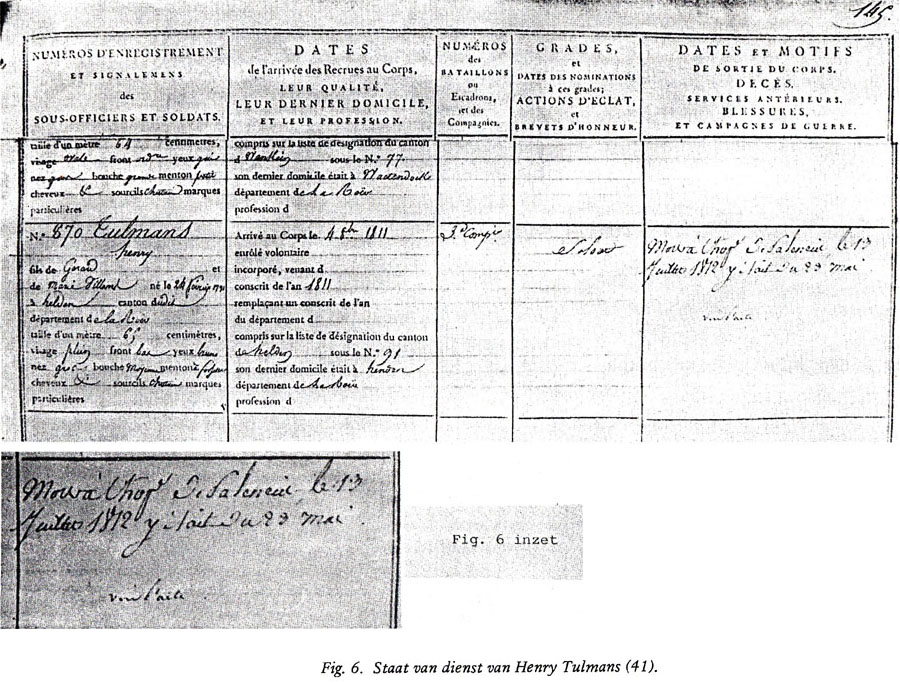 145.
NUMÉROS D'ENREGISTREMENT
ET SIGNALEMENS
des
SOUS-OFFICIERS ET SOLDATS.
DATES
de l'arrivée des Recrues au Corps,
LEUR QUALITÉ,
LEUR DERNIER DOMICILE,
ET LEUR PROFESSION.
NUMÉROS
des
BATAILLONS
ou
Escadrons,
et des
Compagnies.
GRADES,
et
DATES DES NOMINATIONS
à ces grades;
ACTIONS D'ÉCLAT,
et
BREVETS D'HONNEUR.
DATES ET MOTIFS
DE SORTIE DU CORPS.
DÉCÈS,
SERVICES ANTÉRIEURS.
BLESSURES,
ET CAMPAGNES DE GUERRE.
taille d'un mètre 64 centimètres,
visage ovale front yeux gris
nez gros bouche grande menton petit
cheveux sourcils chatain marques
particulières
compris sur la liste de désignation du canton
d sous le N.° 77
son dernier domicile était à
département de la Roër
profession d
N.° 870 Tulmans
henry
fils de Gerard et
de né le 24 février
à helden canton dudit
département de la Roër
taille d'un mètre 65 centimètres,
visage plein front bas yeux bruns
nez gros bouche moyenne menton
cheveux sourcils chatain marques
particulières
Arrivé au Corps le 4 8bre 1811
enrôlé volontaire
incorporé, venant d
conscrit de l'an 1811
remplaçant un conscrit de l'an
du département d
compris sur la liste de désignation du canton
de sous le N.° 91
son dernier domicile était à
département de la Roër
profession d
3e Compie
Mort à l'hopl le 13
Juillet 1812 y était du 23 mai
Mort à l'hopl le 13
Juillet 1812 y était du 23 mai
Fig. 6 inzet
Fig. 6. Staat van dienst van Henry Tulmans (41).